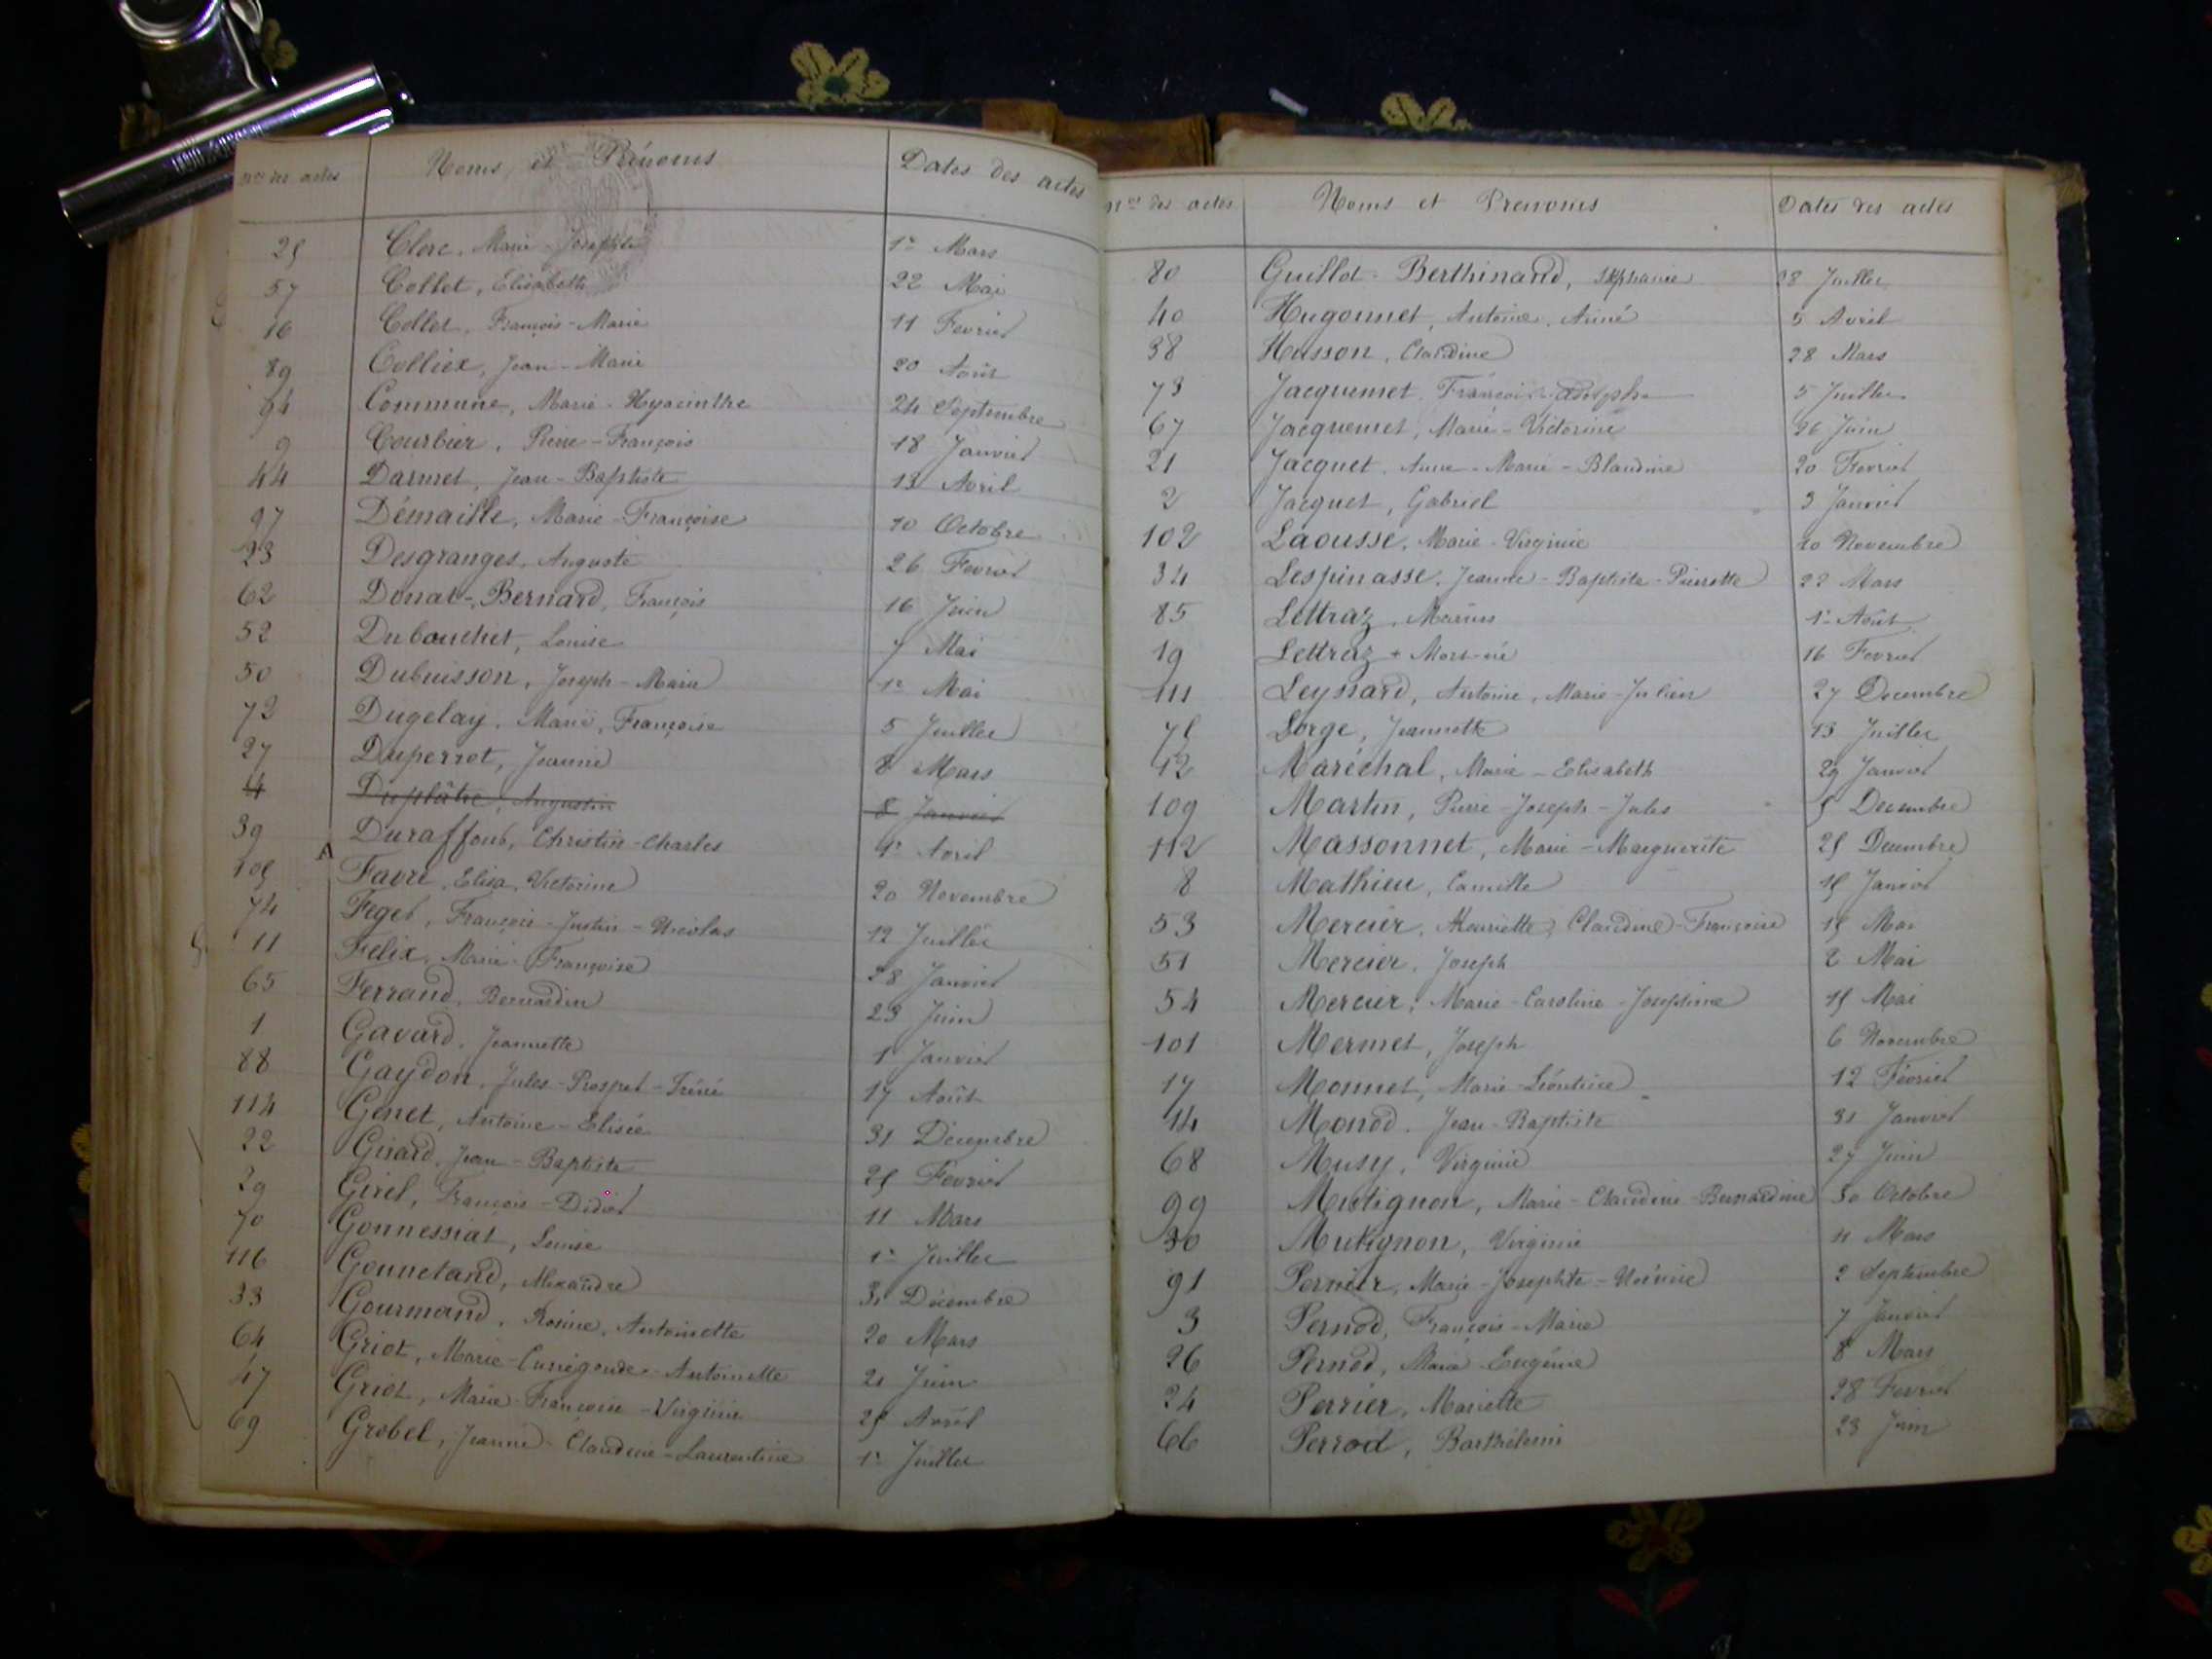 Nos des actes Noms et Prénoms Dates des actes
25 Clerc, Marie-Josephte 1er Mars
57 Collet, Elisabeth 22 Mai
16 Collet, François-Marie 11 Fevrier
89 Colliex, Jean-Marie 20 Août
94 Commune, Marie-Hyacinthe 24 Septembre
9 Courbier, Pierre-François 18 Janvier
44 Darmet, Jean-Baptiste 13 Avril
97 Démaille, Marie-Françoise 10 Octobre
23 Desgranges, Auguste 26 Fevrier
62 Donat-Bernard, François 16 Juin
52 Dubouchet, Louise 7 Mai
50 Dubuisson, Joseph-Marie 1er Mai
72 Dugelay, Marie, Françoise 5 Juillet
27 Duperrot, Jeanne 8 Mars
4 Duplâtre, Augustin 8 Janvier
39 Duraffour, Christin-Charles 1er Avril
105 Favre, Elisa, Victorine 20 Novembre
74 Feget, François-Justin-Nicolas 12 Juillet
11 Felix, Marie-Françoise 28 Janvier
65 Ferrand, Bernardin 23 Juin
1 Gavard, Jeannette 1 Janvier
88 Gaydon, Jules-Prosper-Iréné 17 Août
114 Genet, Antoine-Elisée 31 Décembre
22 Girard, Jean-Baptiste 25 Fevrier
29 Girel, François-Didier 11 Mars
70 Gonnessiat, Louise 1er Juillet
116 Gounetand, Alexandre 31 Décembre
33 Gourmand, Rosine, Antoinette 20 Mars
64 Griot, Marie-Cunégonde-Antoinette 21 Juin
47 Griot, Marie-Françoise-Virginie 25 Avril
69 Grobel, Jeanne-Claudine-Laurentine 1er Juillet
Nos des actes Noms et Prenoms Dates des actes
80 Guillot-Berthinand, Stéphanie 28 Juillet
40 Hugonnet, Antoine, Aimé 5 Avril
38 Husson, Claudine 28 Mars
73 Jacquemet, François 5 Juillet
67 Jacquemet, Marie-Victorine 26 Juin
21 Jacquet, Anne-Marie-Blandine 20 Fevrier
2 Jacquet, Gabriel 3 Janvier
102 Laousse, Marie-Virginie 10 Novembre
34 Lespinasse, Jeanne-Baptiste-Pierrette 22 Mars
85 Lettraz, Marius 1er Août
19 Lettraz + Mort-né 16 Fevrier
111 Leyssard, Antoine, Marie-Julien 27 Decembre
75 Lorge, Jeannette 13 Juillet
12 Maréchal, Marie-Elisabeth 29 Janvier
109 Martin, Pierre-Joseph-Jules 5 Decembre
112 Massonnet, Marie-Marguerite 25 Decembre
8 Mathieu, Camille 15 Janvier
53 Mercier, Henriette, Claudine-Françoise 15 Mai
51 Mercier, Joseph 2 Mai
54 Mercier, Marie-Caroline-Josephine 15 Mai
101 Mermet, Joseph 6 Novembre
17 Monnet, Marie-Léontine 12 Février
14 Monod, Jean-Baptiste 31 Janvier
68 Musy, Virginie 27 Juin
99 Mutignon, Marie-Claudine-Bernardine 30 Octobre
30 Mutignon, Virginie 11 Mars
91 Pernier, Marie-Josephte 2 Septembre
3 Pernod, François-Marie 7 Janvier
26 Pernod, Marie-Eugénie 8 Mars
24 Perrier, Mariette 28 Fevrier
66 Perrod, Barthélemi 23 Juin